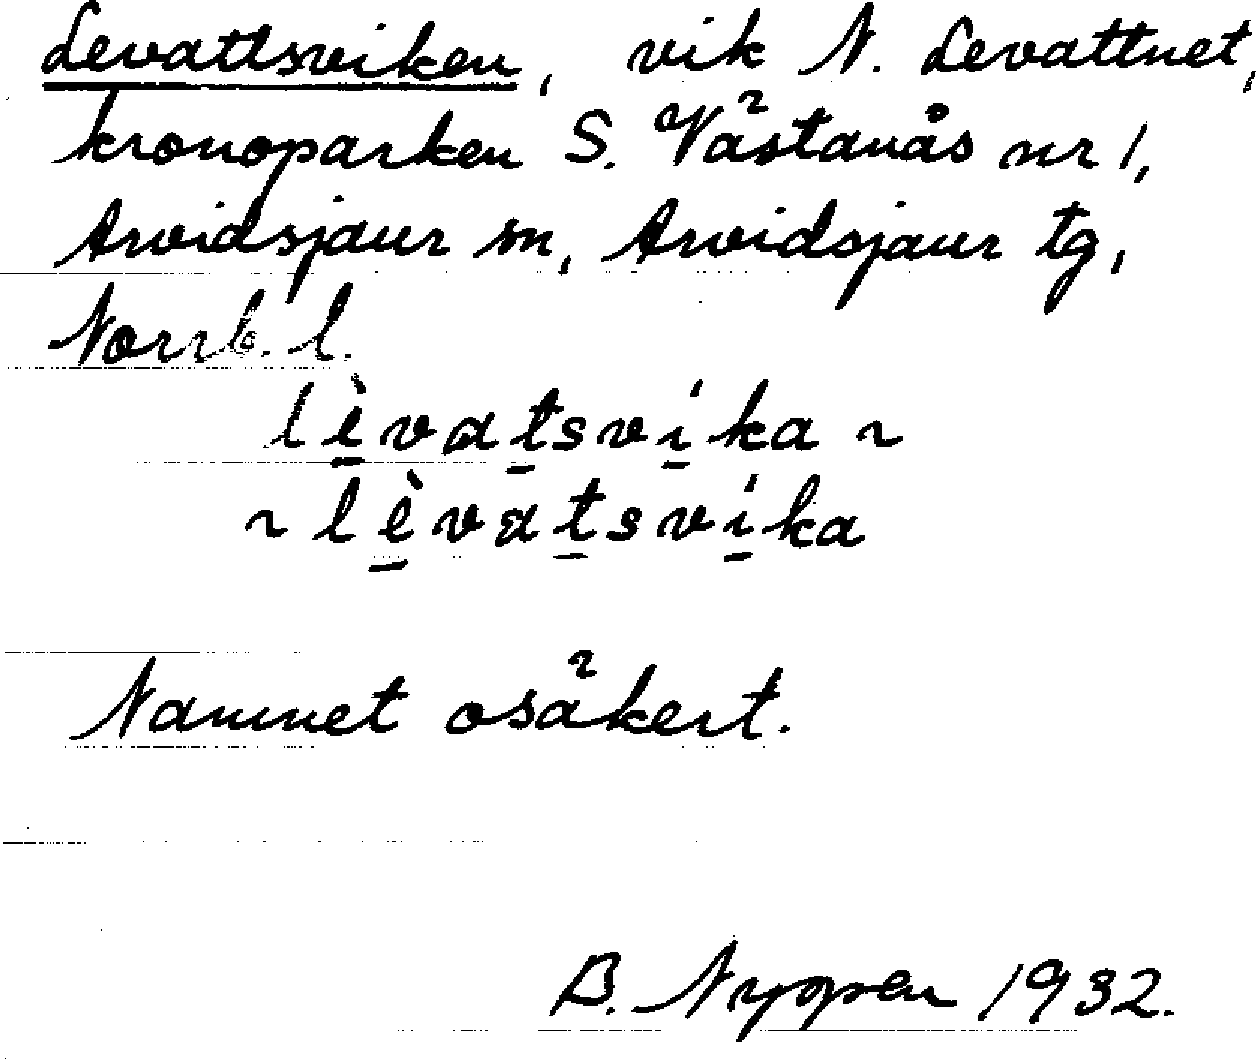 Levattsviken, vik N. Levattnet,
kronoparken S. Västanås nr 1,
Arvidsjaur sn, Arvidsjaur tg,
Norrb. l.
lè̱vaṯsví̱ka ~
~ lè̱vaṯsví̱ka
Namnet osäkert.
B. Nyopen 1932.